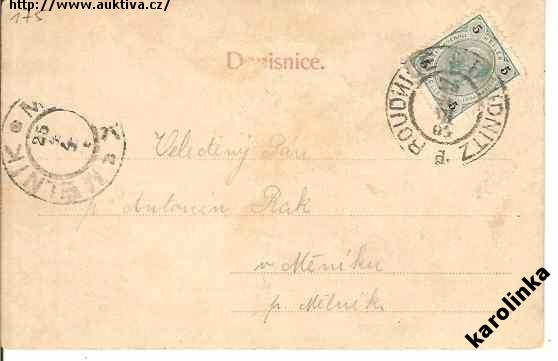 http://www.auktiva.cz/
175
Dopisnice.
5 5
5
ROUDNICE ROUDNITZ
03
MĚLNÍK MELNIK
25
Veleděný Pan
p. Antonín Rak
v Měníku
p. Mělník
karolinka